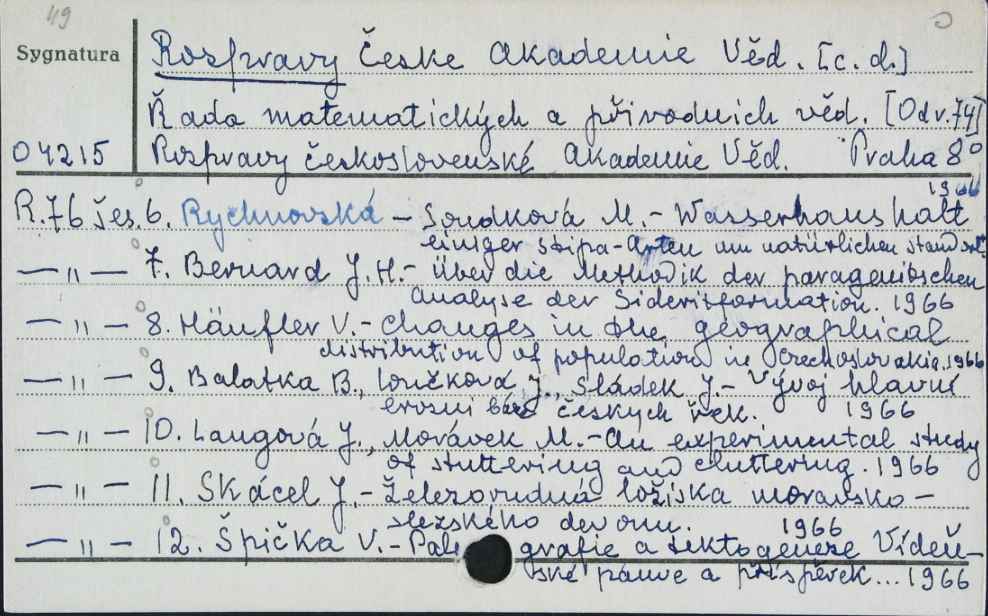 49
Sygnatura
Rospravy České Akademie Věd. [c. d.]
Řada matematických a přirodních věd. [Od v. 74]
04215 Rospravy československé Akademie Věd. Praha 8°
1966
R. 76 seš. 6. Rychnovská - Soudková M. - Wasserhaushalt
einiger Stipa-Arten am natürlichen Standort.
— " — 7. Bernard J. H. - Über die Methodik der paragenitschen
Analyse der Sideritformation. 1966
— " — 8. Häufler V. - Changes in the geographical
distribution of population in Czechoslovakia. 1966
— " — 9. Balatka B., Loučková J., Sládek J. - Vývoj hlavní
erosni báze českých řek. 1966
— " — 10. Langová J., Morávek M. - An experimental study
of stuttering and cluttering. 1966
— " — 11. Skácel J. - Železorudná ložiska moravsko -
slezského devonu. 1966
— " — 12. Špička V. - Pale grafie a tektogeneze Vídeň-
ské pánve a příspěvek... 1966